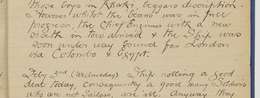 these boys in Khaki, beggars description.
However whilst the "beano" was in full
progress, the Chief comes with a new
wealth in too abroad & the Ship was
soon under way bound for London
via Colombo & Egypt.
July 2nd (Wednesday) Ship rolling a good
deal today, consequently a good many soldiers
who are not sailors, are ill. Anyway they